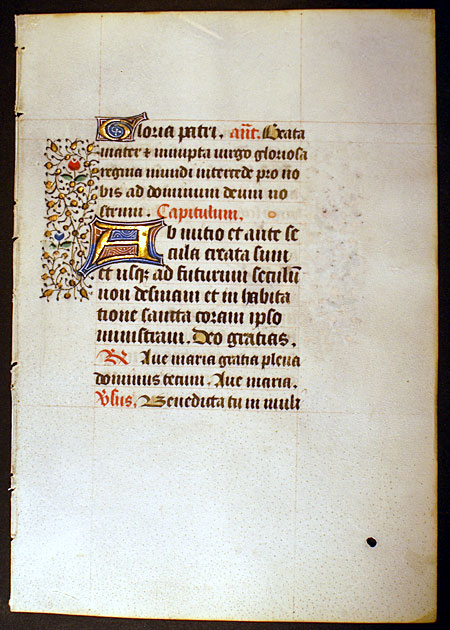 Gloria patri. añt. Beata
mater & innupta virgo gloriosa
regina mundi intercede pro no
bis ad dominum deum no
strum. Capitulum.
Ab initio et ante se
cula creata sum
et usq; ad futurum seculū
non desinam et in habita
tione sancta coram ipso
ministravi. Deo gratias.
R Ave maria gratia plena
dominus tecum. Ave maria.
Vsus. Benedicta tu in mulı